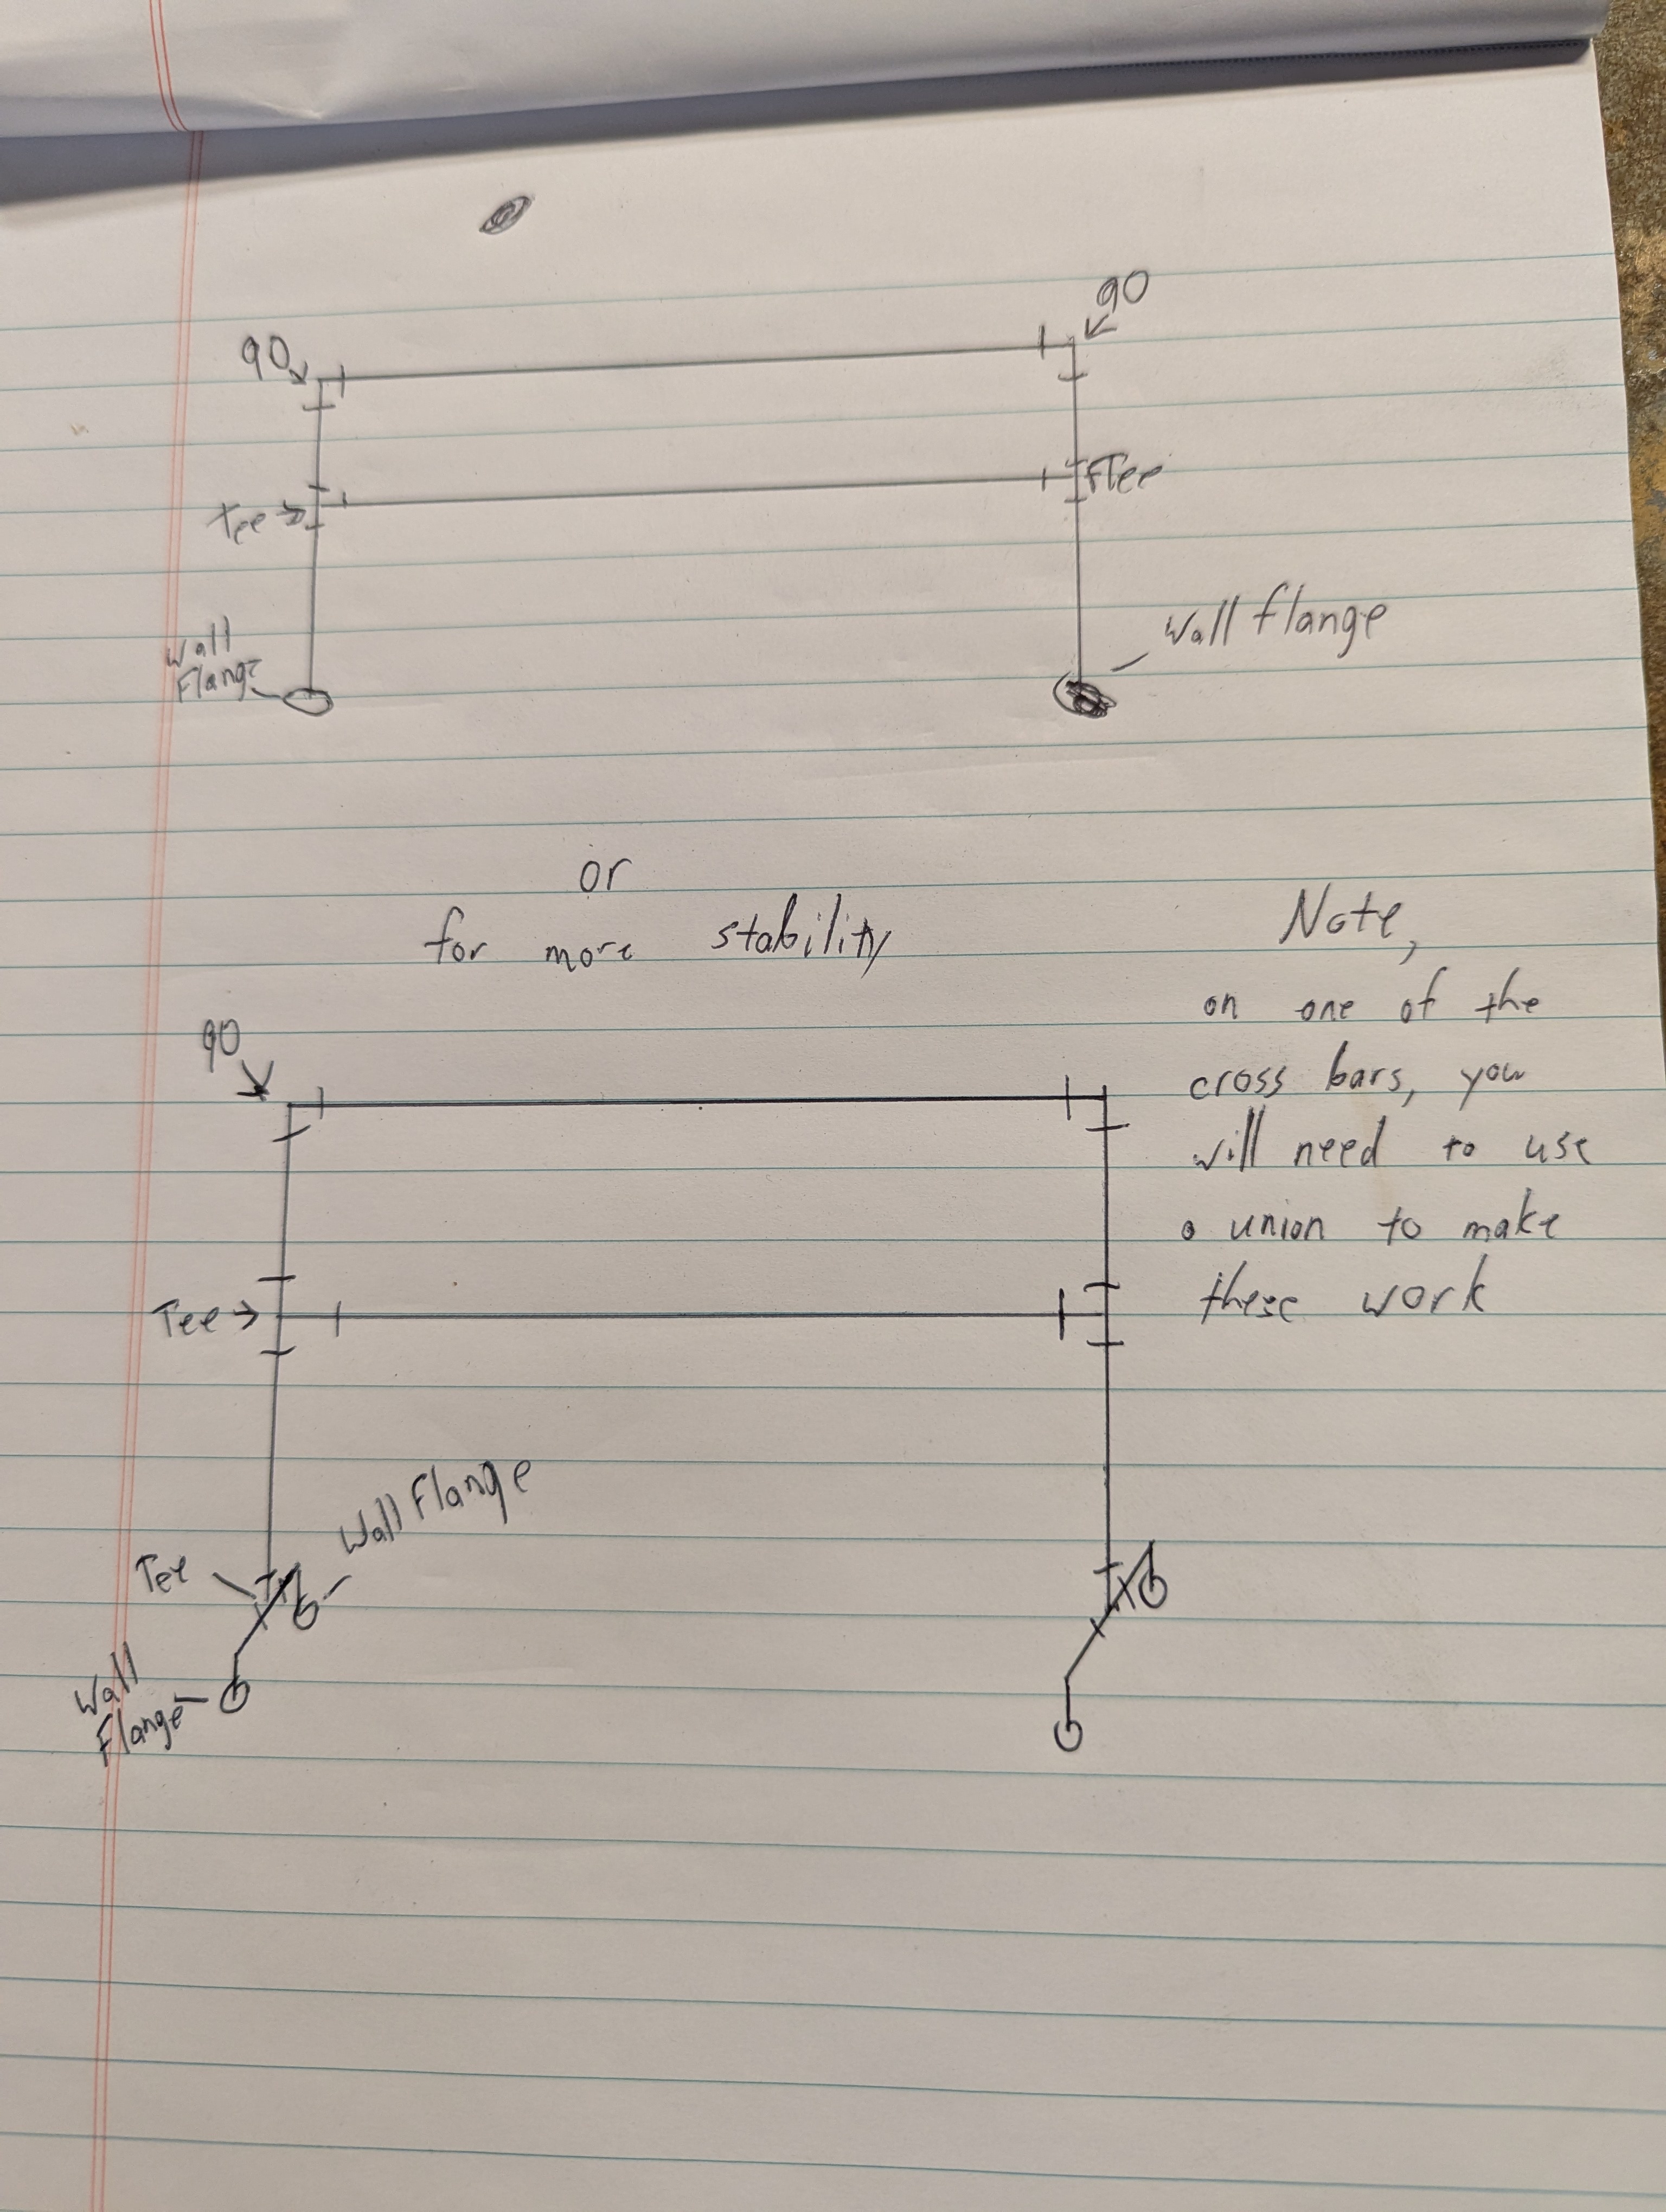 90
90
Tee
Tee
Wall flange
Wall
Flange
or
for more stability
Note,
on one of the
cross bars, you
will need to use
a union to make
these work
90
Tee
Wall Flange
Tee
Wall
Flange